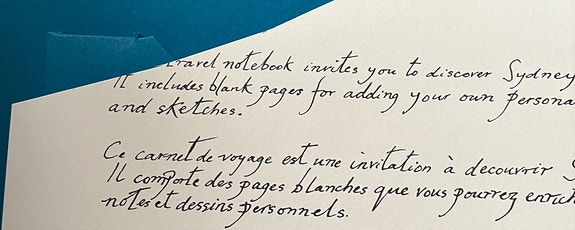 travel notebook invites you to discover Sydney
It includes blank pages for adding your own persona
and sketches.
Ce carnet de voyage est une invitation à decouvrir S
Il comporte des pages blanches que vous pourrez enrich
notes et dessins personnels.